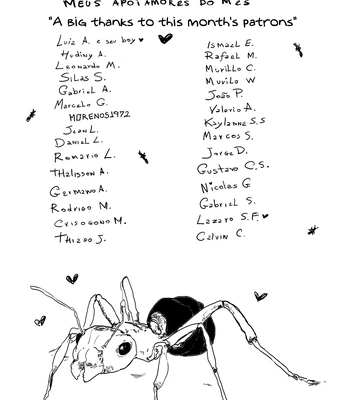 MEUS APOIAMORES DO MÊS
"A BIG thanks to this month's patrons"
Luiz A. e seu boy ♥
Hudiny A.
Leonardo M.
SILAS S.
Gabriel A.
Marcelo G.
MORENOS1972
Jean L.
Daniel L.
Romario L.
THalisson A.
Germano A.
Rodrigo M.
Crisogono M.
Thiago J.
Ismael E.
Rafael M.
Murillo C.
Murilo W
João P.
Valerio A.
Kaylanne S.S
Marcos S.
Jorge D.
Gustavo C.S.
Nicolas G
Gabriel S.
Lazaro S.F. ♥
Calvin C.